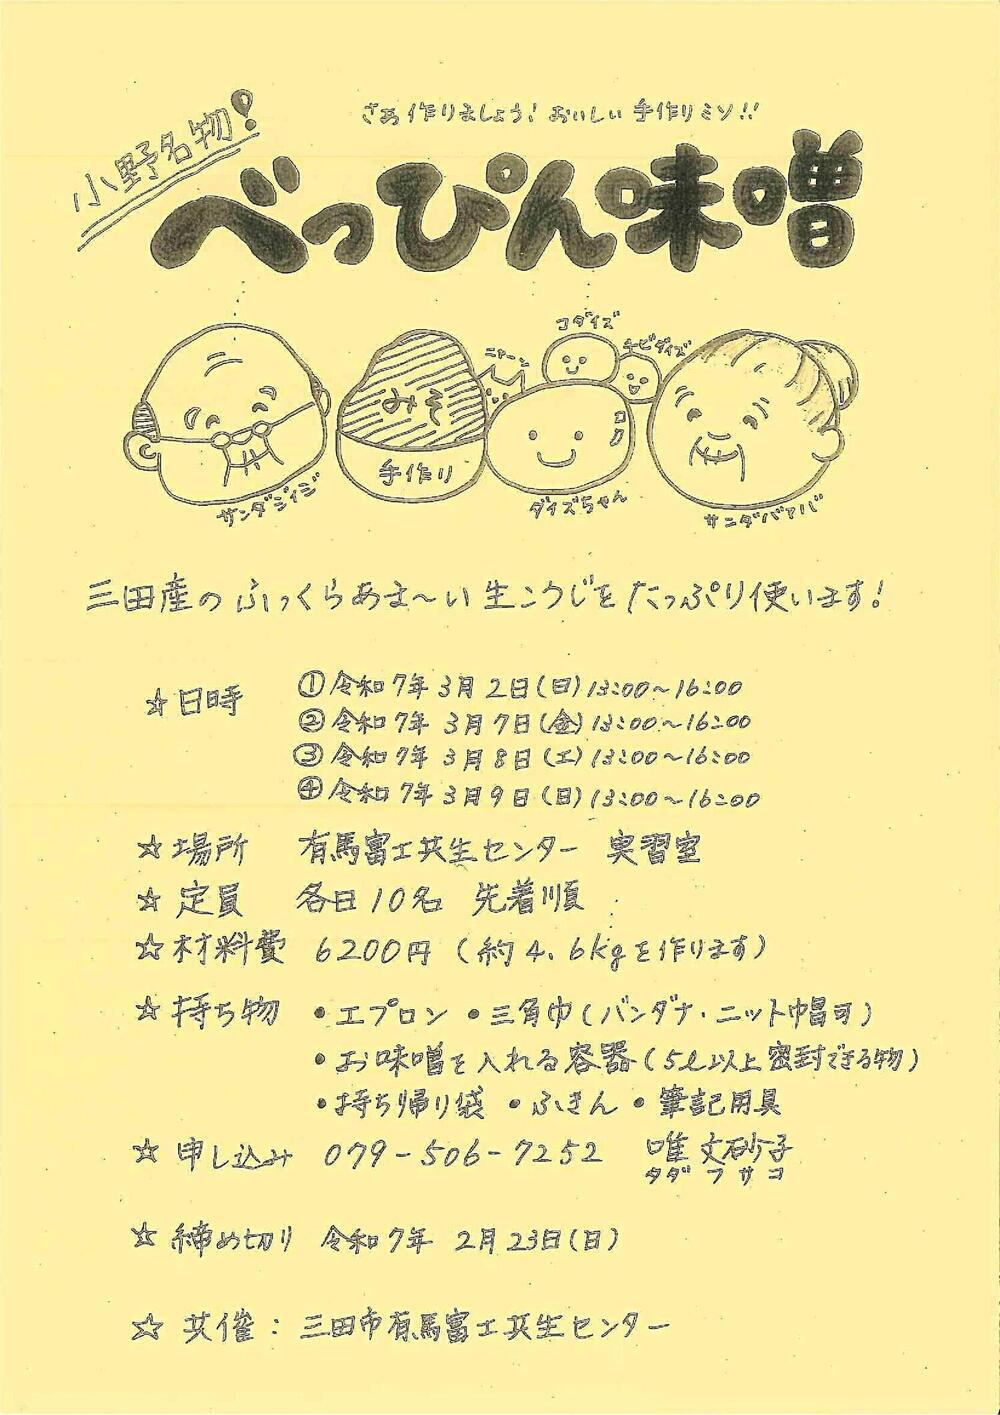 小野名物!
さあ作りましょう!おいしい手作りミソ!!
べっぴん味噌
コダイズ
チビダイズ
ニャーン
みそ
手作り
サンダジイジ
ダイズちゃん
サンダバァバ
三田産のふっくらあま〜い生こうじをたっぷり使います!
☆日時 ①令和7年3月2日(日)13:00〜16:00
②令和7年3月7日(金)13:00〜16:00
③令和7年3月8日(土)13:00〜16:00
④令和7年3月9日(日)13:00〜16:00
☆場所 有馬富士共生センター 実習室
☆定員 各日10名 先着順
☆材料費 6200円(約4.6kgを作ります)
☆持ち物 ・エプロン ・三角巾(バンダナ・ニット帽可)
・お味噌を入れる容器(5ℓ以上密封できる物)
・持ち帰り袋 ・ふきん ・筆記用具
☆申し込み 079-506-7252 唯 文砂子
タダ フサコ
☆締め切り 令和7年 2月23日(日)
☆共催:三田市有馬富士共生センター